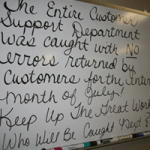 The Entire Customer
Support Department
was caught with NO
errors returned by
customers for the entire
month of July!
Keep Up The Great Work
Who Will Be Caught Next